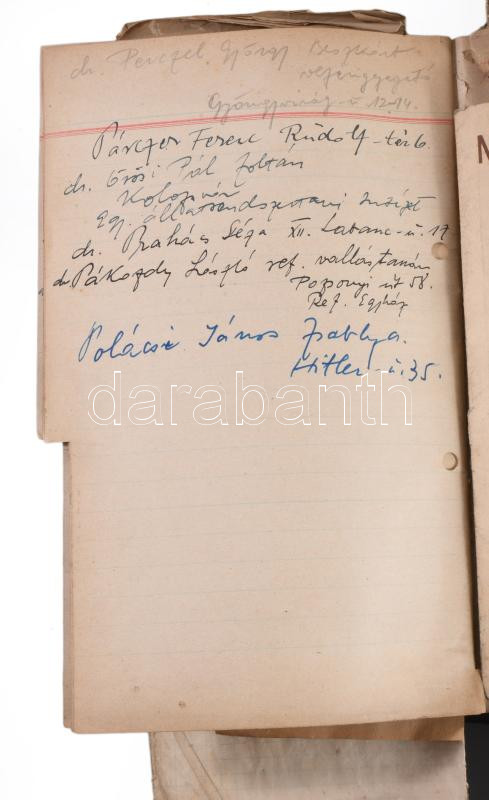 dr. Perczel György Beszkárt
Gyöngyvirág-u 12-14.
Párczer Ferenc Rudolf-tér 6.
dr. Örösi Pál Zoltán
Kolozsvár
Egy. Állatrendszertani Intézet
dr. Prahács Géza XII. Labanc-u. 17
dr. Pákozdy László ref. vallástanár
Pozsonyi út 58.
Ref. Egyház
Polácsi János Zsablya.
Hitler-u. 35.
darabanth
N